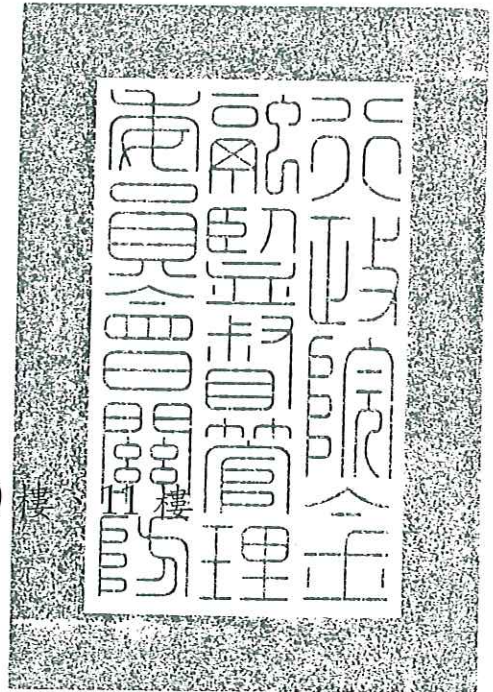 行政院金
融監督管理
委員會關防
樓 11 樓